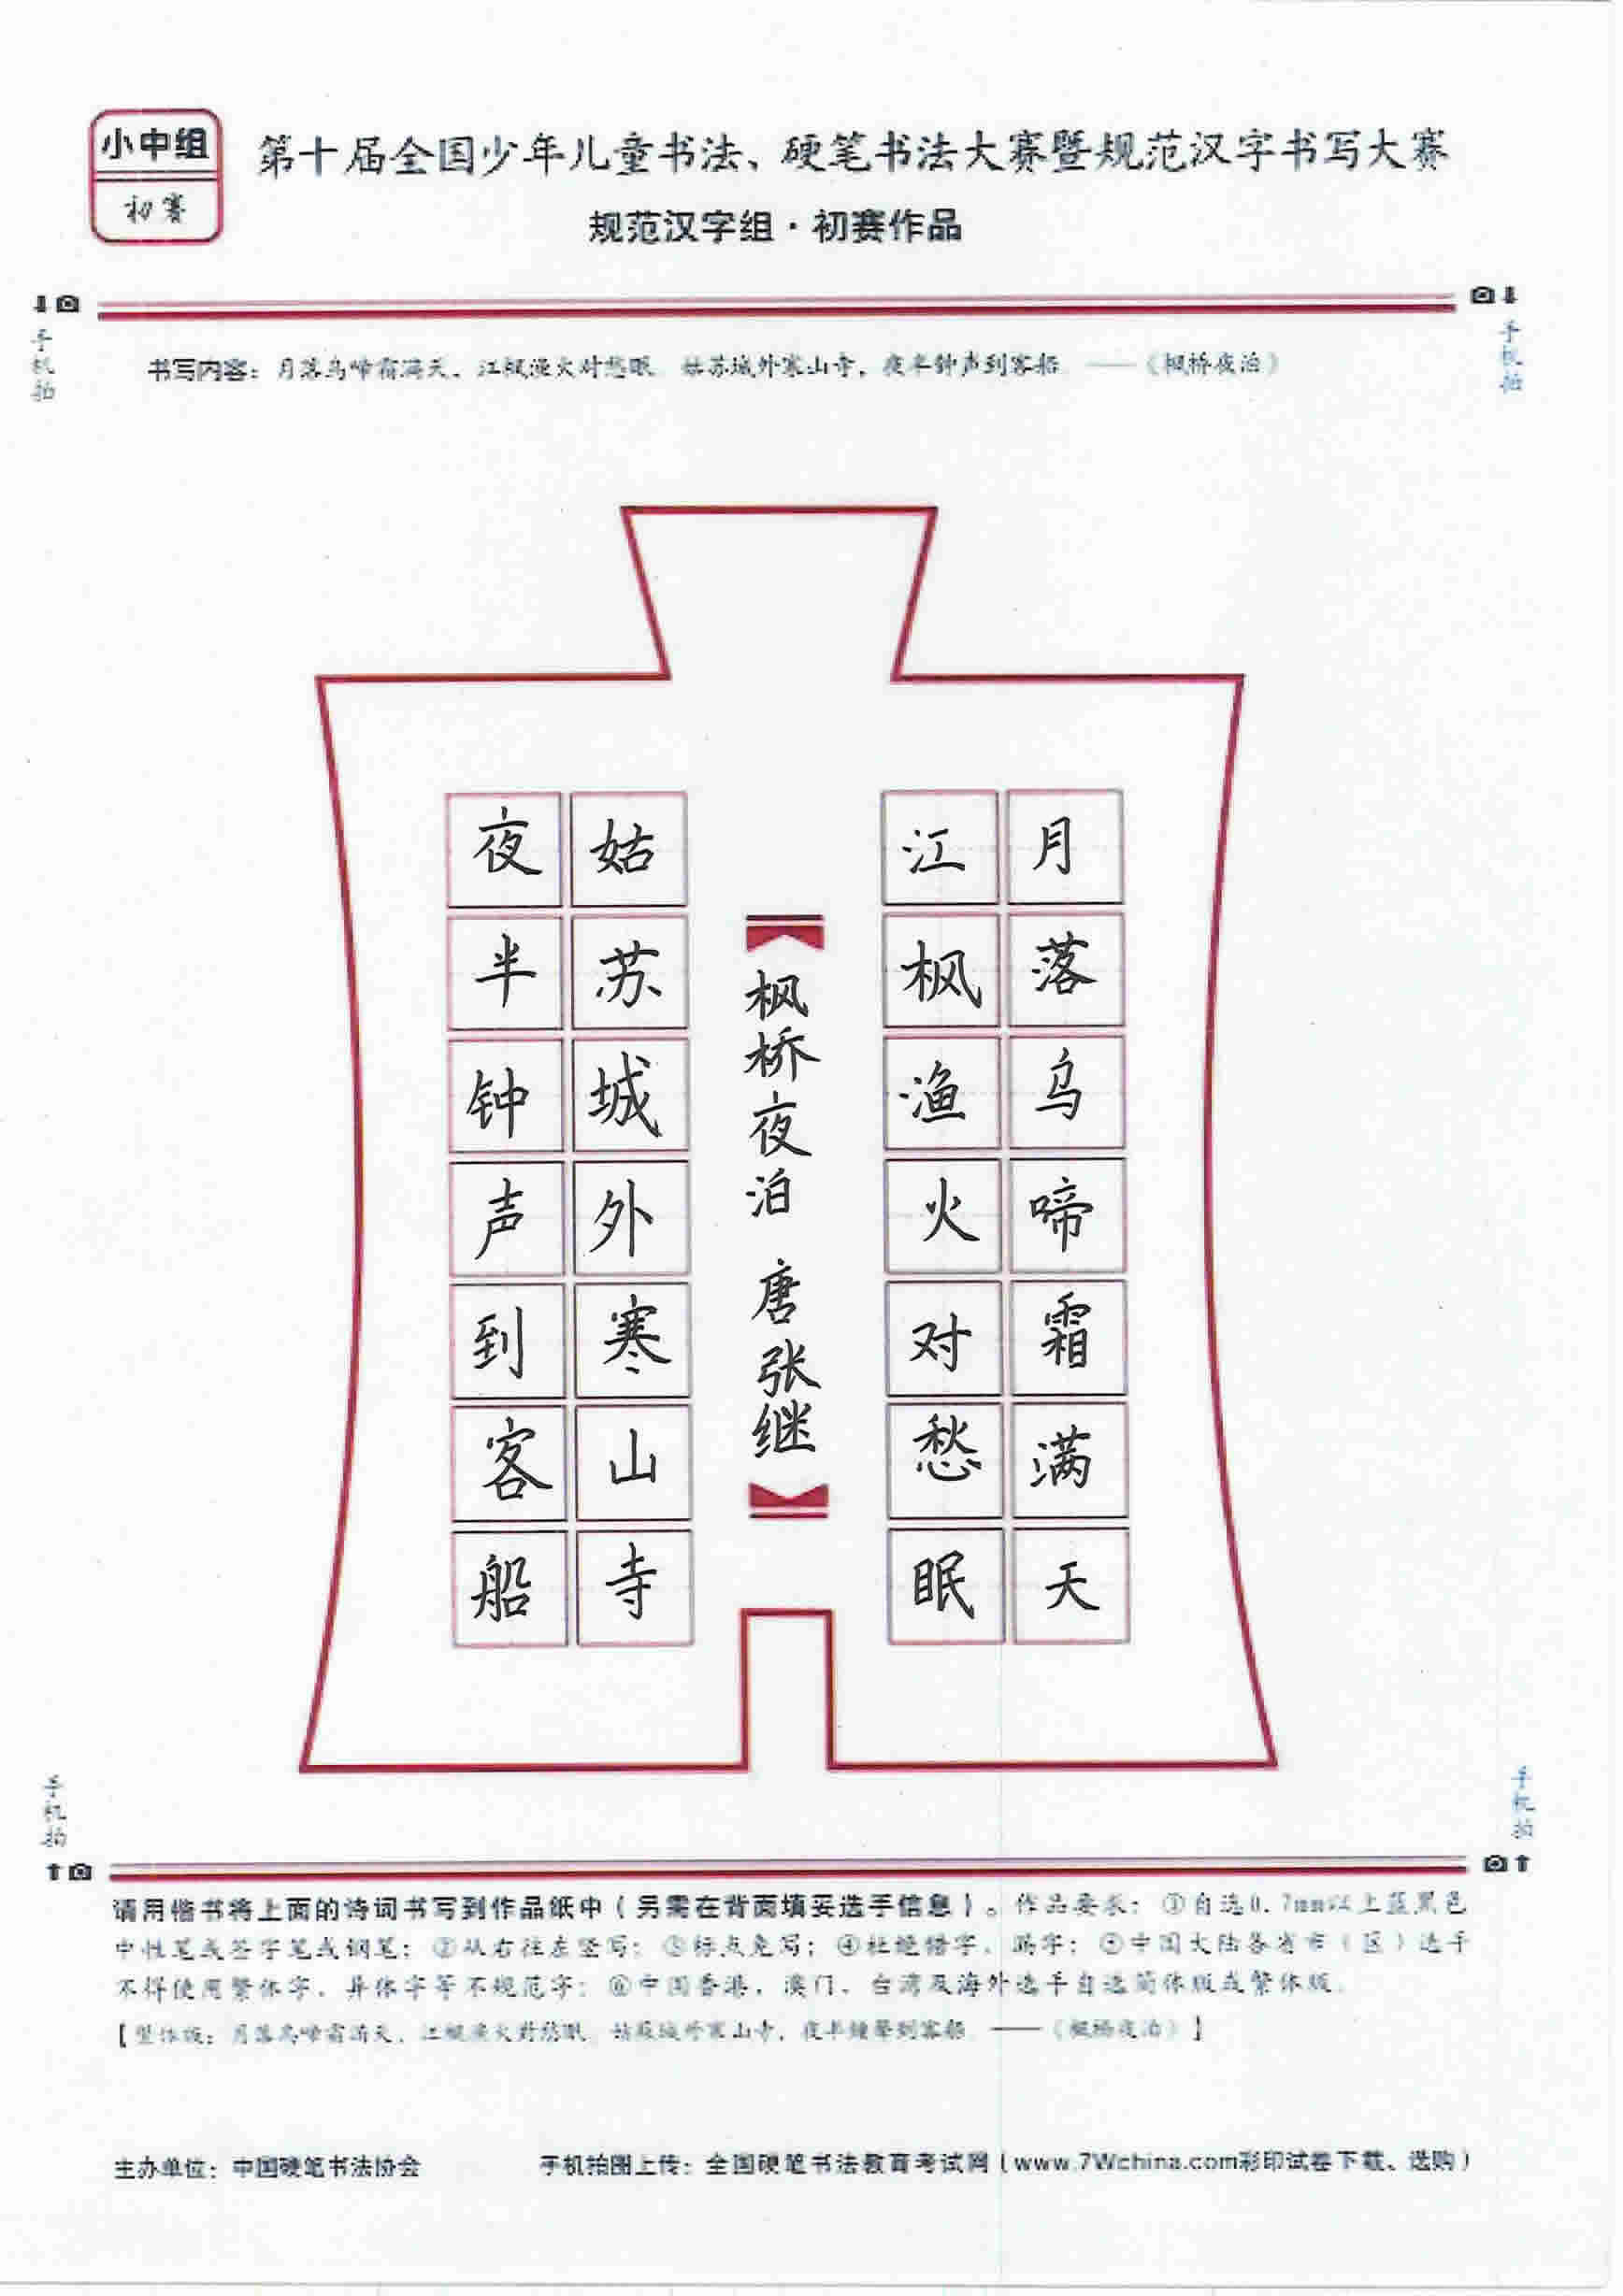 小中组
初赛
第十届全国少年儿童书法、硬笔书法大赛暨规范汉字书写大赛
规范汉字组·初赛作品
手机拍
手机拍
书写内容：月落乌啼霜满天，江枫渔火对愁眠。姑苏城外寒山寺，夜半钟声到客船。——《枫桥夜泊》
月落乌啼霜满天
江枫渔火对愁眠
枫桥夜泊 唐 张继
姑苏城外寒山寺
夜半钟声到客船
手机拍
手机拍
请用楷书将上面的诗词书写到作品纸中（另需在背面填妥选手信息）。作品要求：①自选0.7mm以上蓝黑色
中性笔或签字笔或钢笔；②从右往左竖写；③标点免写；④杜绝错字、漏字；⑤中国大陆各省市（区）选手
不得使用繁体字、异体字等不规范字；⑥中国香港、澳门、台湾及海外选手自选简体版或繁体版。
主办单位：中国硬笔书法协会
手机拍图上传：全国硬笔书法教育考试网（www.7Wchina.com彩印试卷下载、选购）